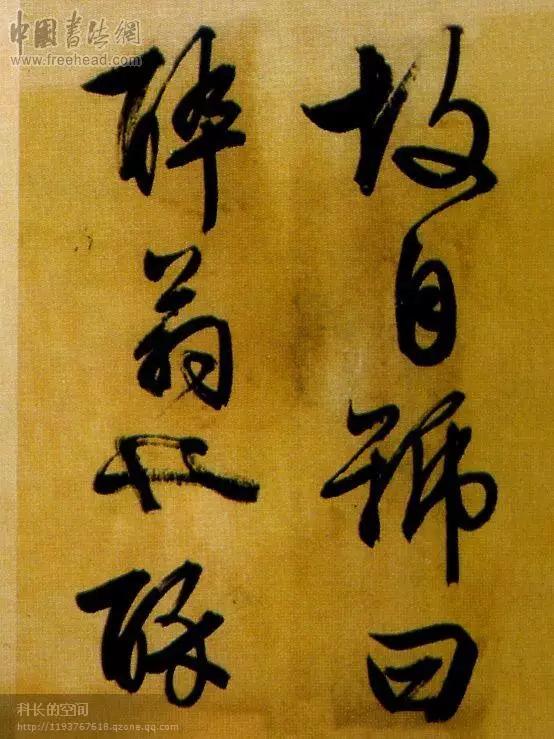 中國書法網
www.freehead.com
故自號曰
醉翁也醉
科长的空间
http://1193767618.qzone.qq.com